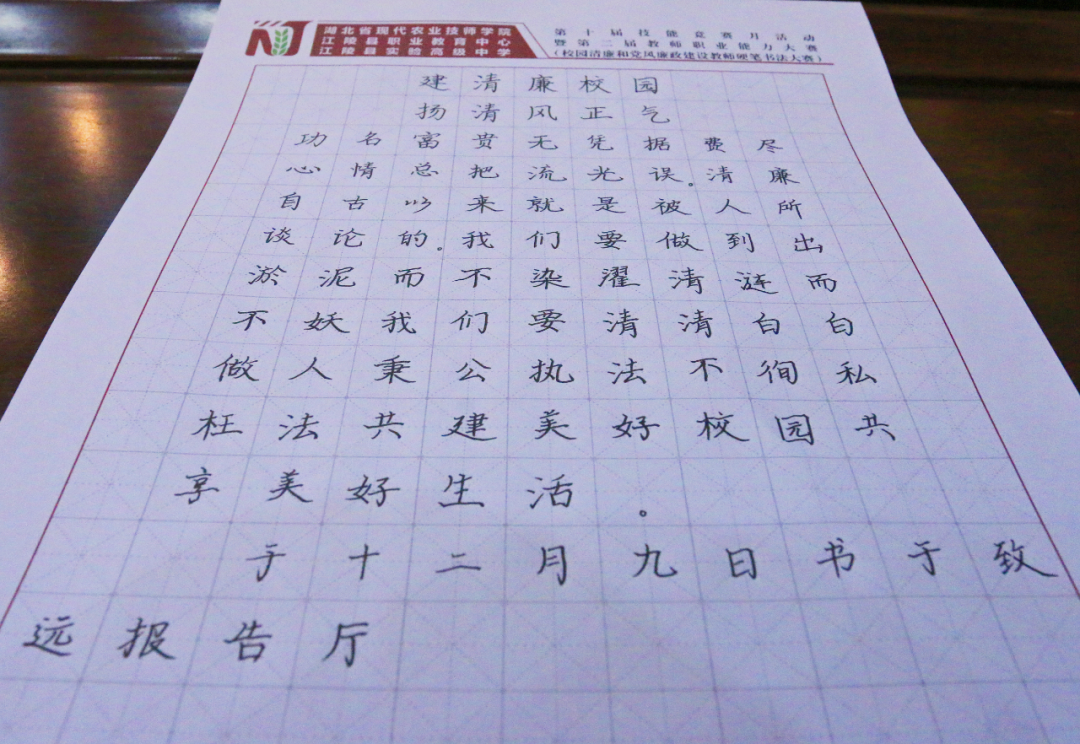 湖北省现代农业技师学院
江陵县职业教育中心
江陵县实验高级中学
第十届技能竞赛月活动
暨第二届教师职业能力大赛
（校园清廉和党风廉政建设教师硬笔书法大赛）
建清廉校园
扬清风正气
功名富贵无凭据费尽
心情总把流光误。清廉
自古以来就是被人所
谈论的。我们要做到出
淤泥而不染濯清涟而
不妖我们要清清白白
做人秉公执法不徇私
枉法共建美好校园共
享美好生活。
于十二月九日书于致
远报告厅